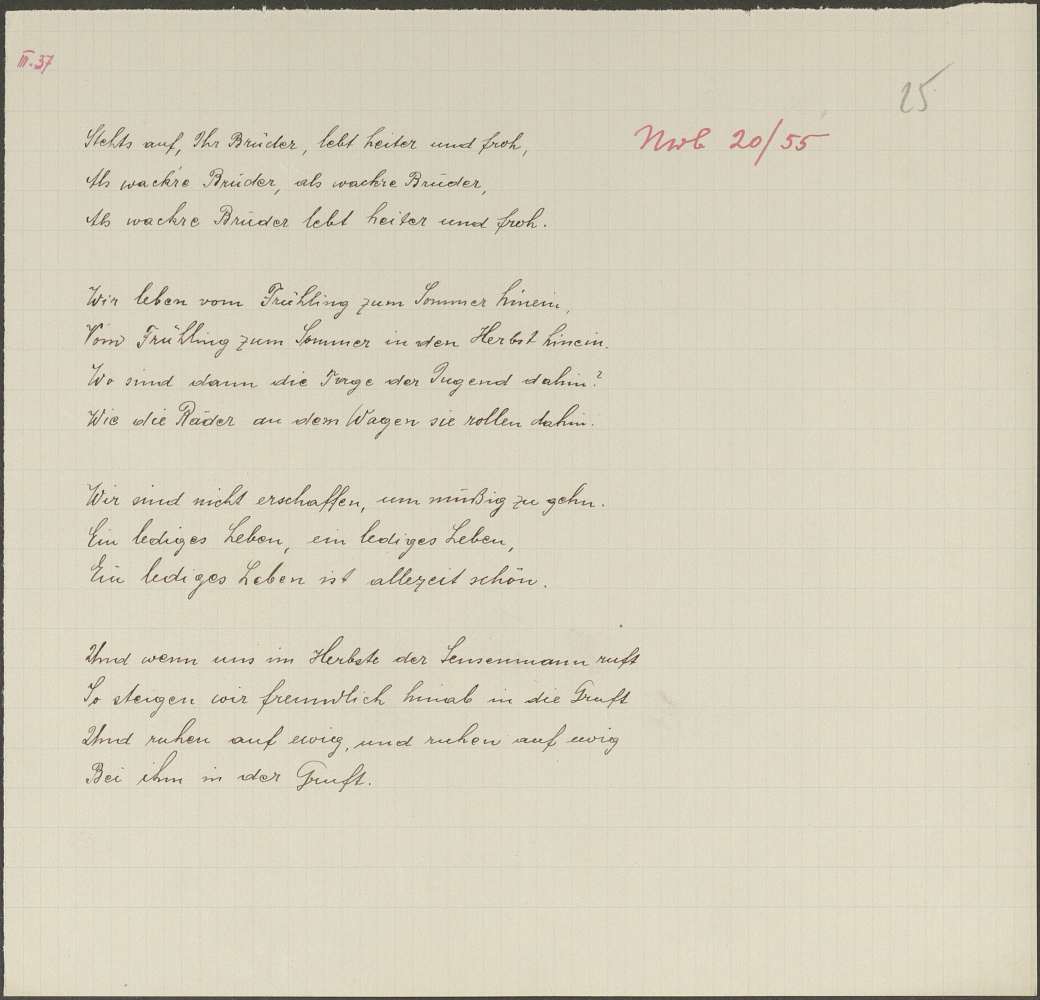 III. 37
25
Nwb 20/55
Stehts auf, Ihr Brüder, lebt heiter und froh,
Als wack're Brüder, als wackre Brüder,
Als wackre Brüder lebt heiter und froh.
Wir leben vom Frühling zum Sommer hinein,
Vom Frühling zum Sommer in den Herbst hinein.
Wo sind dann die Tage der Jugend dahin?
Wie die Räder an dem Wagen sie rollen dahin.
Wir sind nicht erschaffen, um müßig zu gehn.
Ein lediges Leben, ein lediges Leben,
Ein lediges Leben ist allezeit schön.
Und wenn uns im Herbste der Sensenmann ruft
So steigen wir freundlich hinab in die Gruft
Und ruhen auf ewig, und ruhen auf ewig
Bei ihm in der Gruft.